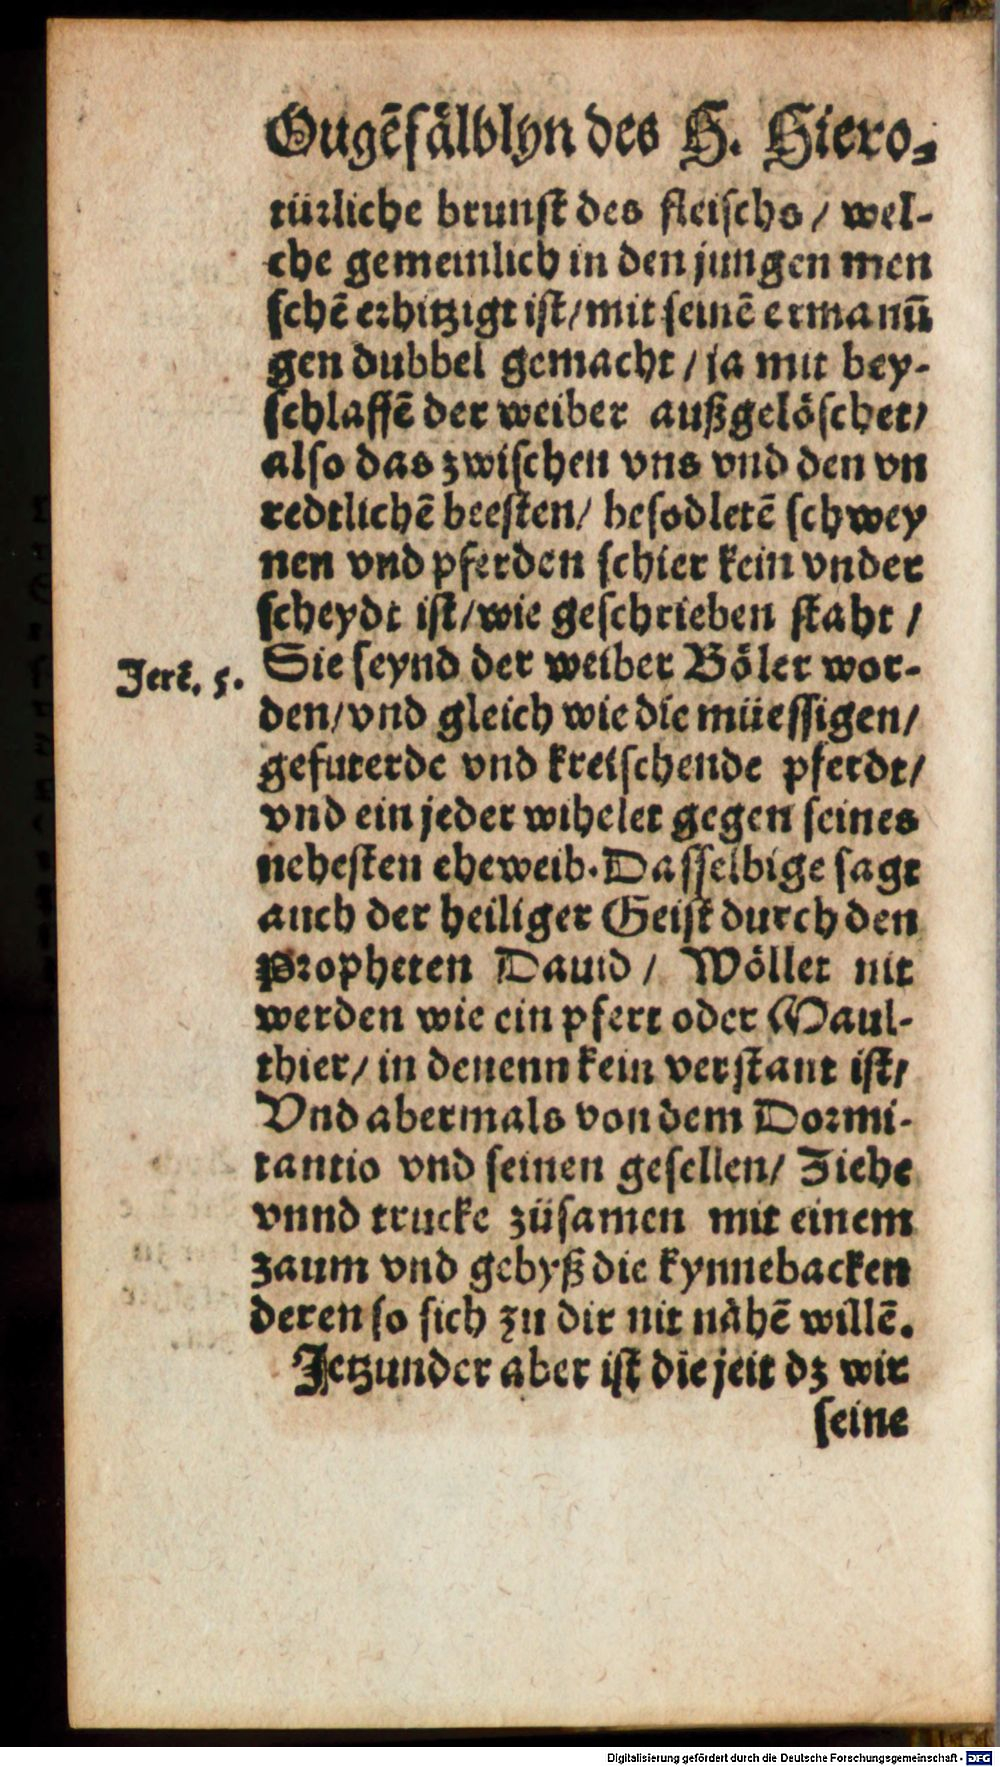 Ougēsälblyn des H. Hiero-
türliche brunst des fleischs / wel-
che gemeinlich in den jungen men
schē erhitzigt ist / mit seinē ermanū
gen dubbel gemacht / ja mit bey-
schlaffē der weiber außgelöschet /
also das zwischen vns vnd den vn
redtlichē beesten / besodletē schwey
nen vnd pferden schier kein vnder
scheydt ist / wie geschrieben staht /
Jere. 5.
Sie seynd der weiber Böler wor-
den / vnd gleich wie die müessigen /
gefuterde vnd kreischende pferdt /
vnd ein jeder wihelet gegen seines
nehesten eheweib. Dasselbige sagt
auch der heiliger Geist durch den
Propheten Dauid / Wöllet nit
werden wie ein pfert oder Maul-
thier / in denenn kein verstant ist /
Vnd abermals von dem Dormi-
tantio vnd seinen gesellen / Ziehe
vnnd trucke züsamen mit einem
zaum vnd gebyß die kynnebacken
deren so sich zu dir nit nähē willē.
Jetzunder aber ist die jeit dz wir
seine
Digitalisierung gefördert durch die Deutsche Forschungsgemeinschaft - DFG